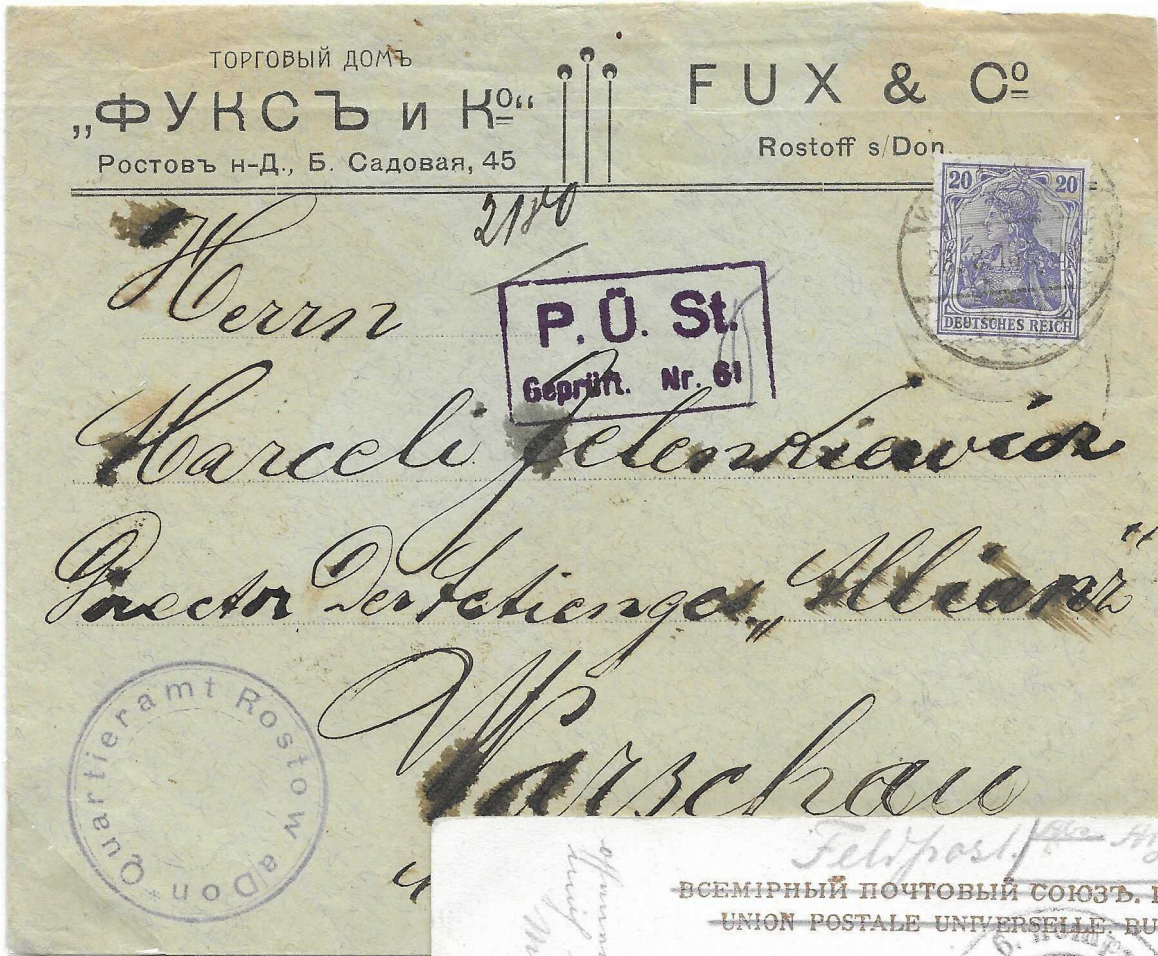 ТОРГОВЫЙ ДОМЪ
„ФУКСЪ и Ко“
Ростовъ н-Д., Б. Садовая, 45
FUX & Co
Rostoff s/Don.
20 20
DEUTSCHES REICH
2180
Herrn
P. Ü. St.
Geprüft. Nr. 61
Marceli Jelenkiewicz
Director der Actienges. „Allianz“
Warschau
Quartieramt Rostow a Don
Feldpost.
ВСЕМІРНЫЙ ПОЧТОВЫЙ СОЮЗЪ.
UNION POSTALE UNIVERSELLE.